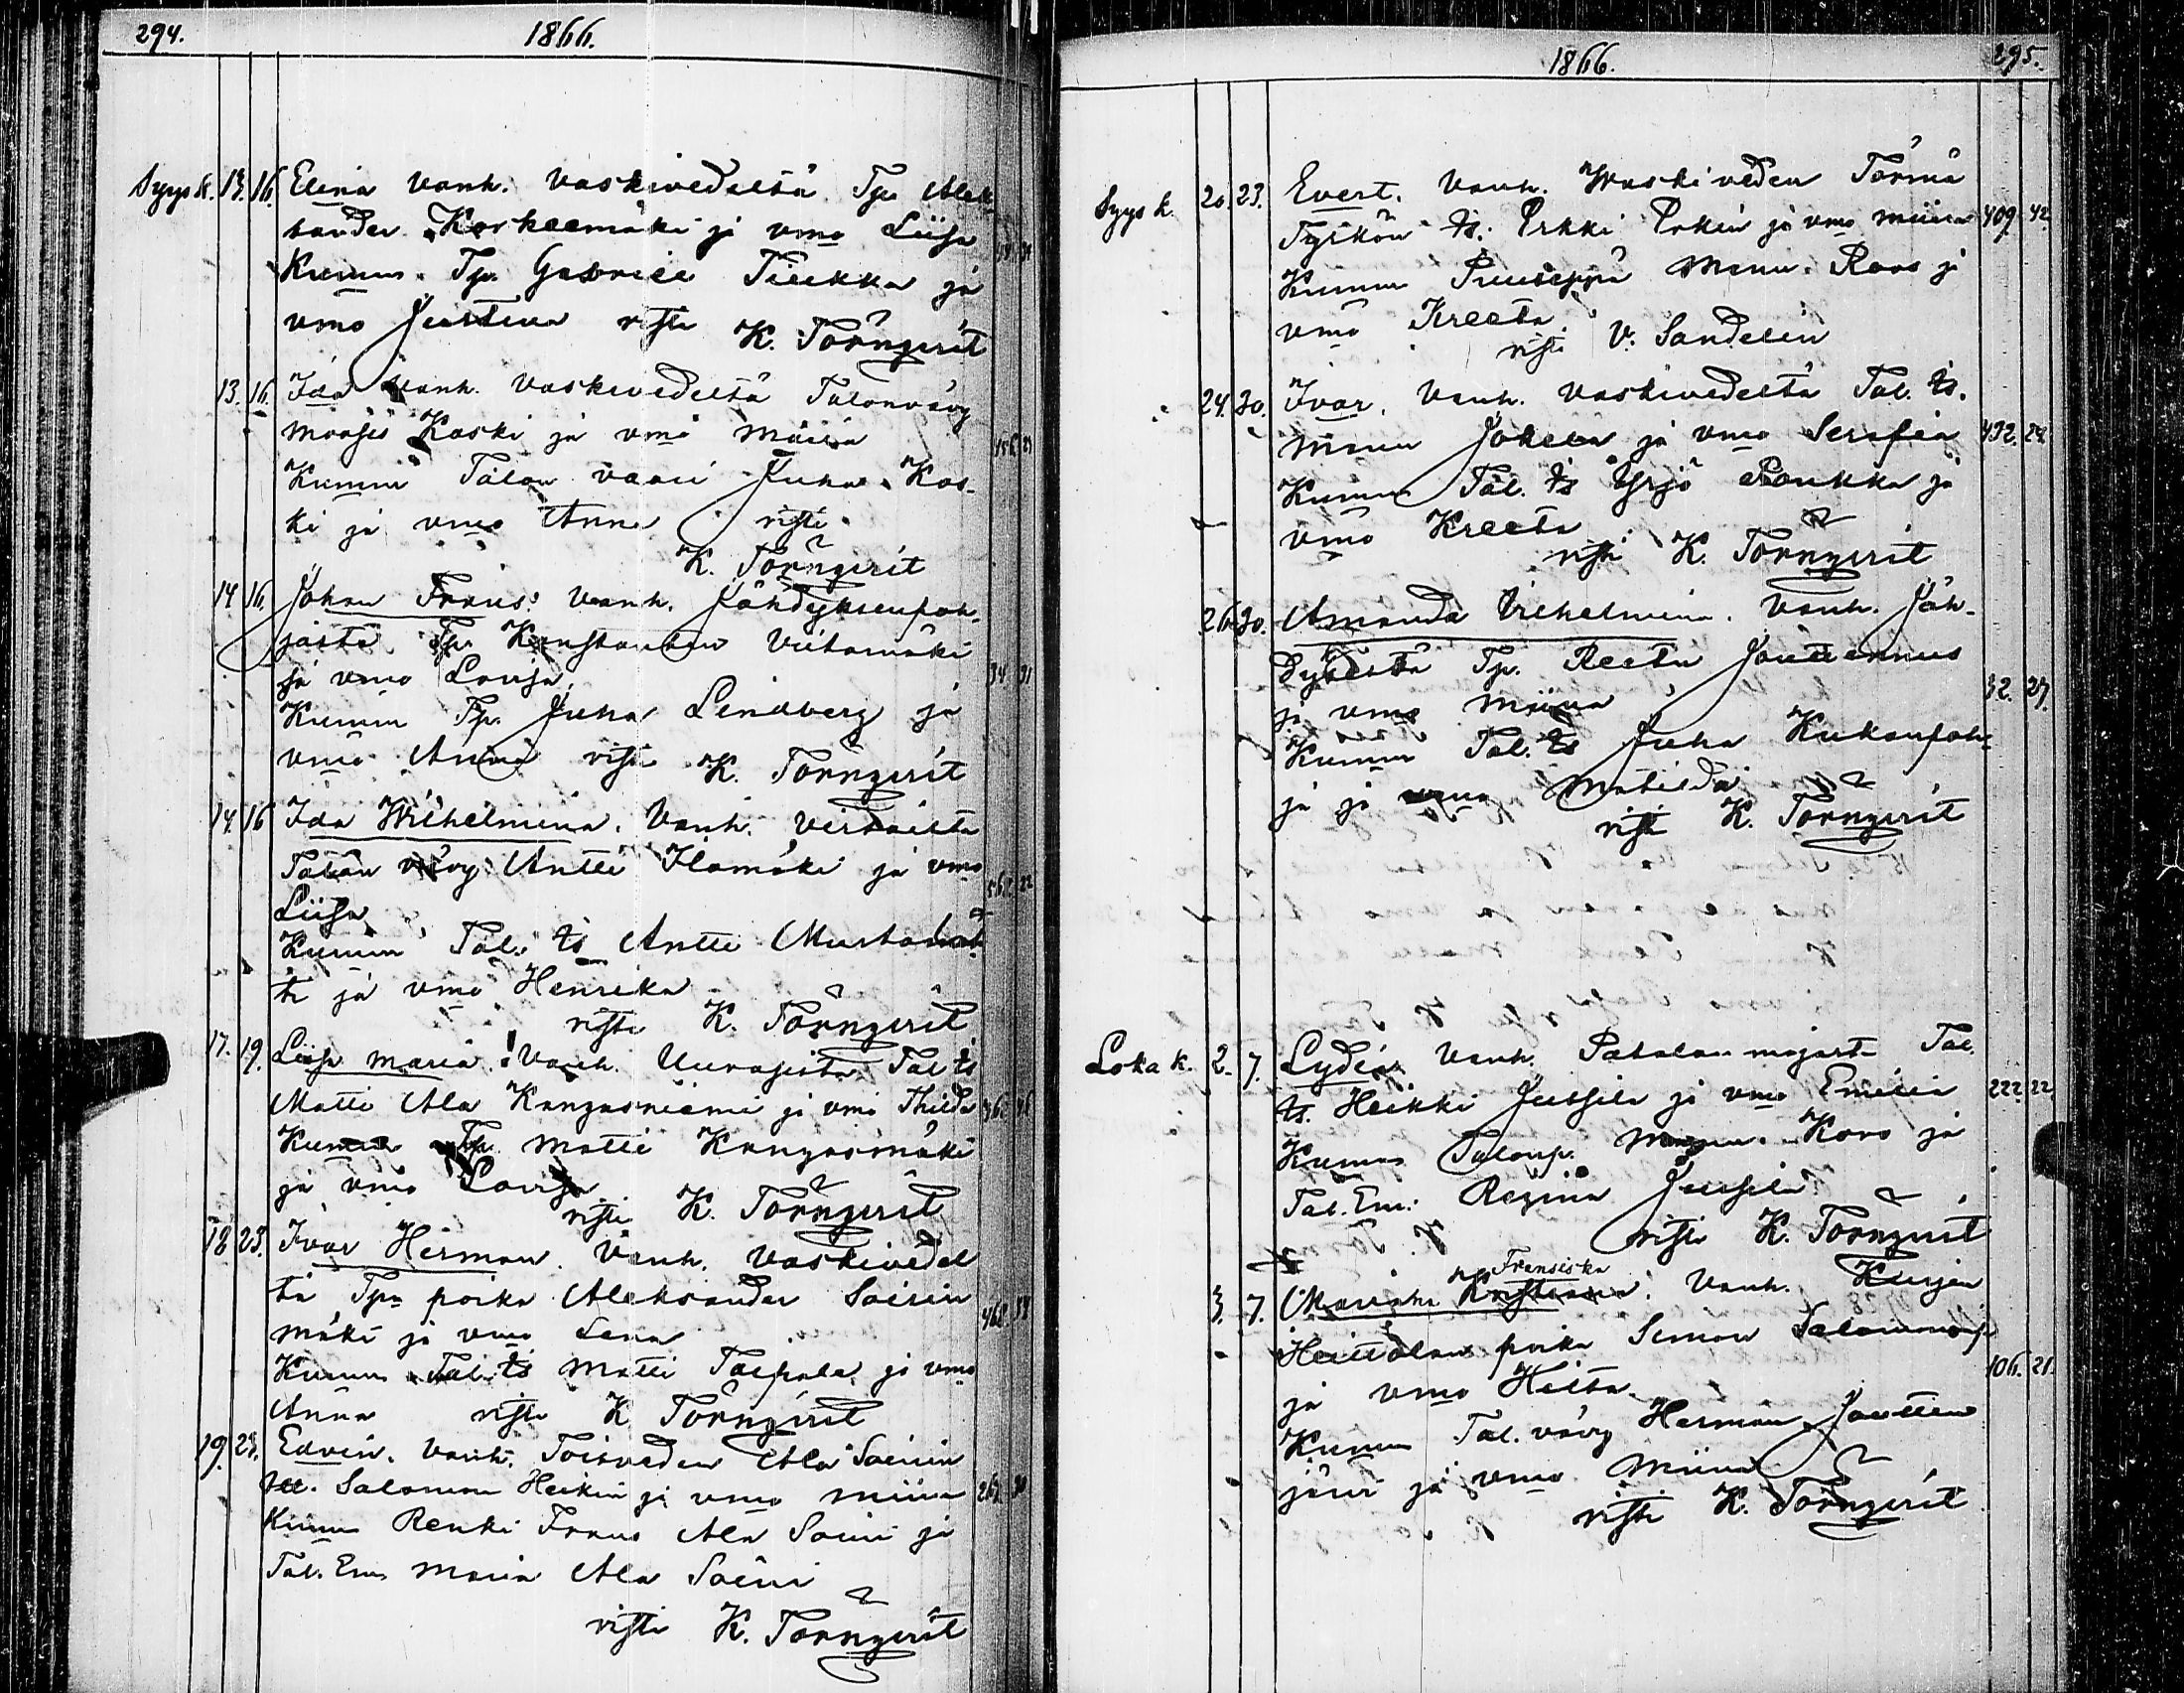 294. 1866.
Syysk. 13. 16. Elina vanh. Vaskivedeltä Tp. Alek-
sander Korkeemäki ja vmo Liisa
Kummi. Tp. Gabriel Tiiekka ja
vmo Justina risti K. Törnqvist
13. 16. Ida vanh. Vaskivedeltä Talonvävy
Mooses Koski ja vmo Maria
Kummi Talon vaari Juha Kos-
ki ja vmo Anna risti
K. Törnqvist
14 16. Johan Frans. vanh. Jähdyksenpoh-
jasta Tp. Konstantin Viitamäki
ja vmo Lovisa 34 31
Kummi Tp. Juha Lindberg ja
vmo Anna risti K. Törnqvist
14. 16 Ida Wilhelmina. Vanh. Virdoilta
Talon vävy Antti Ilomäki ja vmo
Liisa 22
Kummi Tal. ts Antti Mustalah-
ti ja vmo Henrika
risti K. Törnqvist
17. 19. Liisa Maria. Vanh. Uurasista Tal ts
Matti Ala Kangasniemi ja vmo Thilda
Kummi Tp. Matti Kangasmäki
ja vmo Lovisa
risti K. Törnqvist
18 23. Ivar Herman. Vanh. Vaskivedel
tä Tpn poika Aleksander Soinin
mäki ja vmo Lena 462.
Kummi Tal. ts Matti Taipale ja vmo
Anna risti K Törnqvist
19. 23. Edvin. Vanh. Toisveden Ala Soinin
Salomon Heikin ja vmo Miina
Kummi Renki Frans Ala Soini ja
Tal. Em. Maria Ala Soini
risti K. Törnqvist
1866. 295.
Syysk. 20. 23. Evert. Vanh. Waskiveden Törmä
Tyrkön ts. Erkki Erkin ja vmo Miina 409. 42.
Kummi Puuseppä Manu. Roos ja
vmo Kreeta
risti V. Sandelin
24. 30. Ivar. Vanh. Vaskivedeltä Tal. ts.
Manu Jokela ja vmo Serafia 432. 24.
Kummi Tal. ts Yrjö Raukka ja
vmo Kreeta
risti K. Törnqvist
26. 30. Amanda Vilhelmina. Vanh. Jäh-
dyseltä Tp. Reetu Jouttennus
ja vmo Miina 32. 27.
Kummi Tal. ts Juha Kukonpoh-
ja ja vmo Matilda
risti K. Törnqvist
Loka k. 2. 7. Lydia Vanh. Patalan majasta Tal.
ts. Heikki Jussila ja vmo Emilia 222 22
Kummi Talonp. Manu. Koro ja
Tal. Em. Regina Jussila
risti K. Törnqvist
Fransiska
3. 7. Maria Kristiina. Vanh. Kurjen
Heinälän poika Simon Salomonp.
ja vmo Hilta. 106. 21.
Kummi Tal. vävy Herman Joutten
järvi ja vmo Miina
risti K. Törnqvist